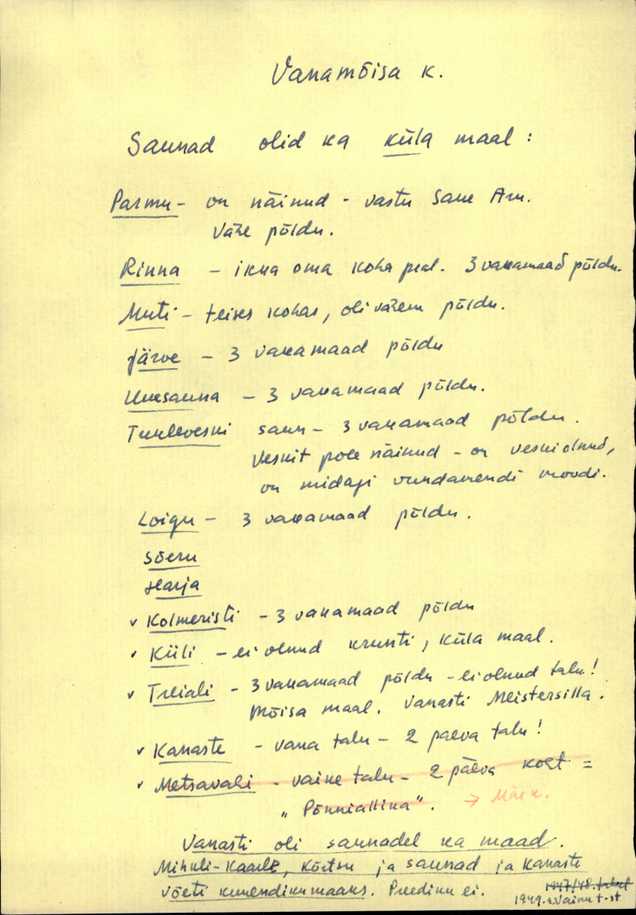 Vanamõisa k.
Saunad olid ka küla maal :
Parmu - on näinud - vastu Saue Aru.
Väke põldu.
Rinna - ikka oma koha peal. 3 vakamaad põldu.
Muti - teises kohas, oli vähem põldu.
Järve - 3 vakamaad põldu
Uuesauna - 3 vakamaad põldu.
Tuuleveski saun - 3 vakamaad põldu.
Veskit pole näinud - on veski olnud,
on midagi vundamendi moodi.
Loigu - 3 vakamaad põldu.
Sõeru
Harja
v Kolmeristi - 3 vakamaad põldu
v Küli - ei olnud krunti, küla maal.
v Treiali - 3 vakamaad põldu - ei olnud talu!
Mõisa maal. Vanasti Meistersilla.
v Kanaste - vana talu - 2 päeva talu!
v Metsavahi - vaine talu - 2 päeva koht =
"Põnniallika". → Märk.
Vanasti oli saunadel ka maad.
Mihkli-Kaarli, Kõrtsu ja saunad ja Kanaste
võeti kümendikumaaks. Preediku ei.
1947/48
1949. a Vainu t-st